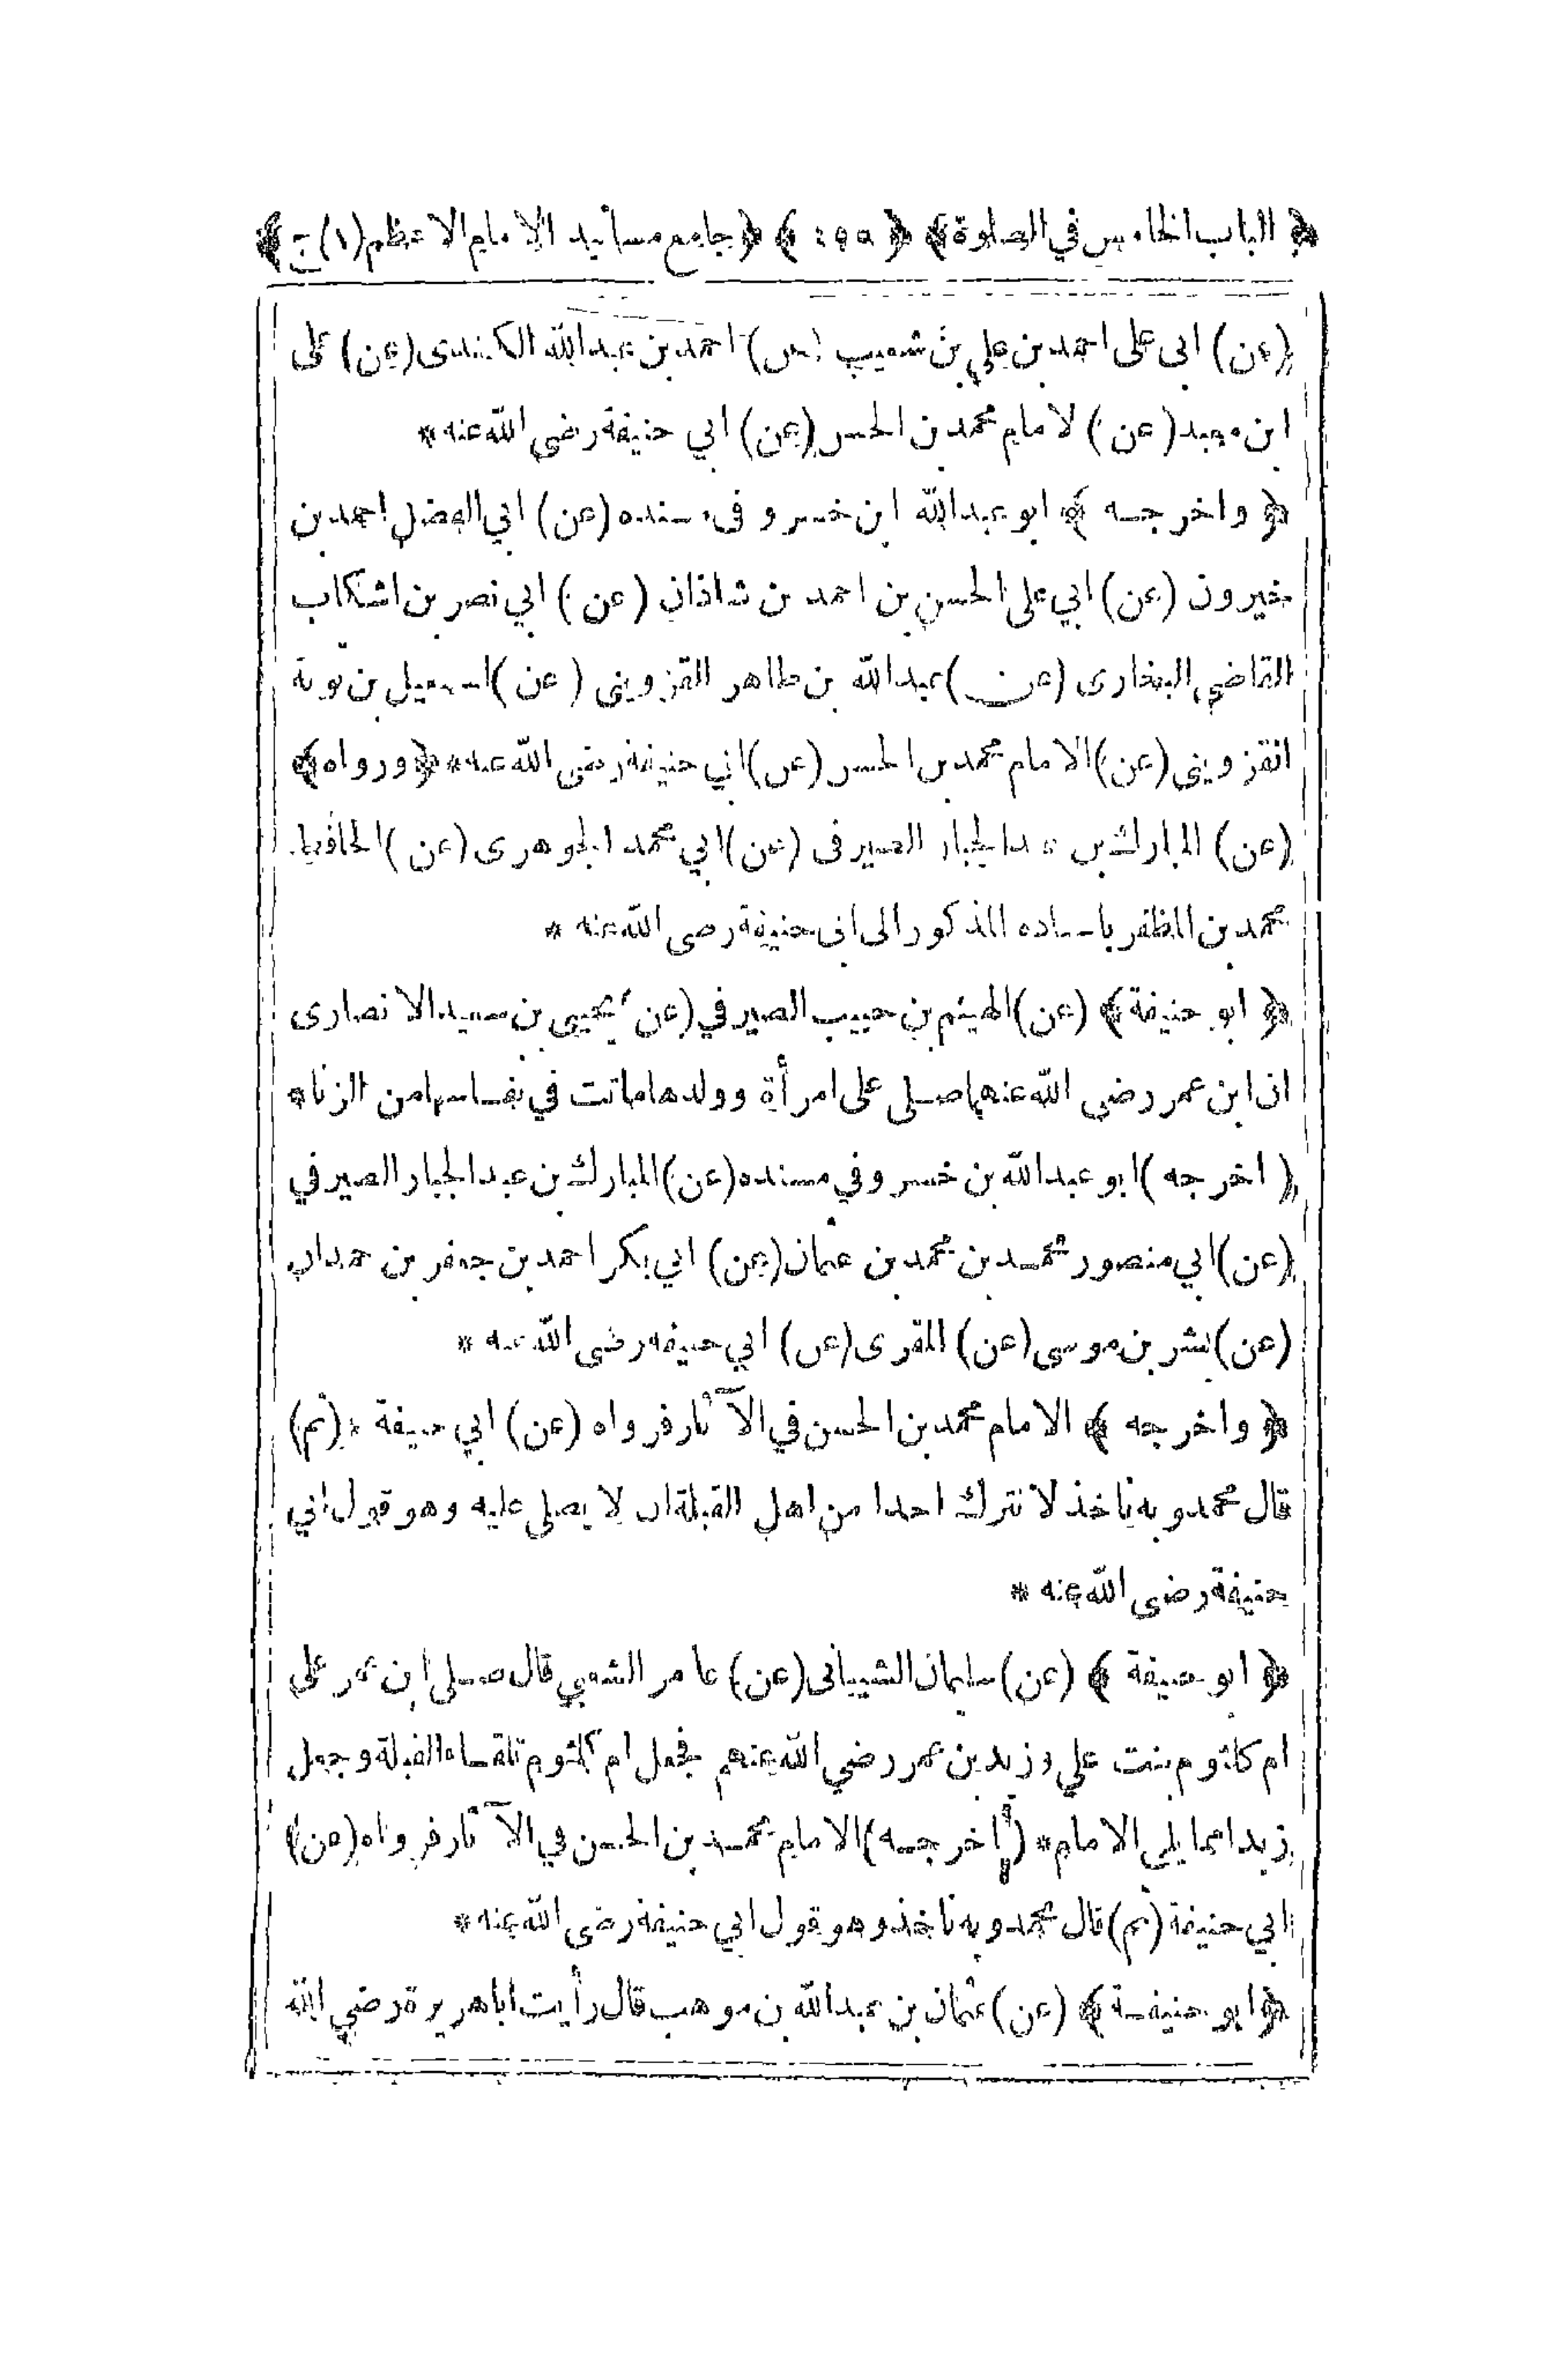 ﴿ الباب الخامس في الصلوة ﴾ ﴿ ٤٥٥ ﴾ ﴿ جامع مسانيد الامام الاعظم (١) ج ﴾
(عن) ابى على احمد بن علي بن شعيب (عن) احمد بن عبدالله الكندى (عن) على
ابن معبد (عن) لامام محمد بن الحسن (عن) ابي حنيفة رضى الله عنه *
﴿ واخرجـه ﴾ ابو عبدالله ابن خسرو فى مسنده (عن) ابي الفضل احمد بن
خيرون (عن) ابي على الحسن بن احمد بن شاذان (عن) ابي نصر بن اشكاب
القاضي البخارى (عن) عبدالله بن طاهر القزوينى (عن) اسمعيل بن توبة
القزوينى (عن) الامام محمد بن الحسن (عن) ابي حنيفة رضى الله عنه * ﴿ ورواه ﴾
(عن) المبارك بن عبدالجبار الصيرفى (عن) ابي محمد الجوهرى (عن) الحافظ
محمد بن المظفر باسناده المذكور الى ابى حنيفة رضى الله عنه *
﴿ ابو حنيفة ﴾ (عن) الهيثم بن حبيب الصيرفي (عن) يحيى بن سعيد الانصارى
ان ابن عمر رضى الله عنهما صلى على امرأة وولدها ماتت في نفاسها من الزنا *
( اخرجه ) ابو عبدالله بن خسرو في مسنده (عن) المبارك بن عبدالجبار الصيرفي
(عن) ابي منصور محمد بن محمد بن عثمان (عن) ابي بكر احمد بن جعفر بن حمدان
(عن) بشر بن موسى (عن) المقرى (عن) ابي حنيفة رضى الله عنه *
﴿ واخرجه ﴾ الامام محمد بن الحسن في الآثار فرواه (عن) ابي حنيفة * (ثم)
قال محمد وبه ناخذ لا نترك احدا من اهل القبلة ان لا يصلى عليه وهو قول ابي
حنيفة رضى الله عنه *
﴿ ابو حنيفة ﴾ (عن) سليمان الشيبانى (عن) عامر الشعبي قال صلى ابن عمر على
ام كلثوم بنت علي وزيد بن عمر رضي الله عنهم فجعل ام كلثوم تلقاء القبلة وجعل
زيدا مما يلى الامام * (اخرجـه) الامام محمد بن الحسن في الآثار فرواه (عن)
ابي حنيفة (ثم) قال محمد وبه ناخذ وهو قول ابي حنيفة رضى الله عنه *
﴿ ابو حنيفة ﴾ (عن) عثمان بن عبدالله بن موهب قال رأيت اباهريرة رضي الله